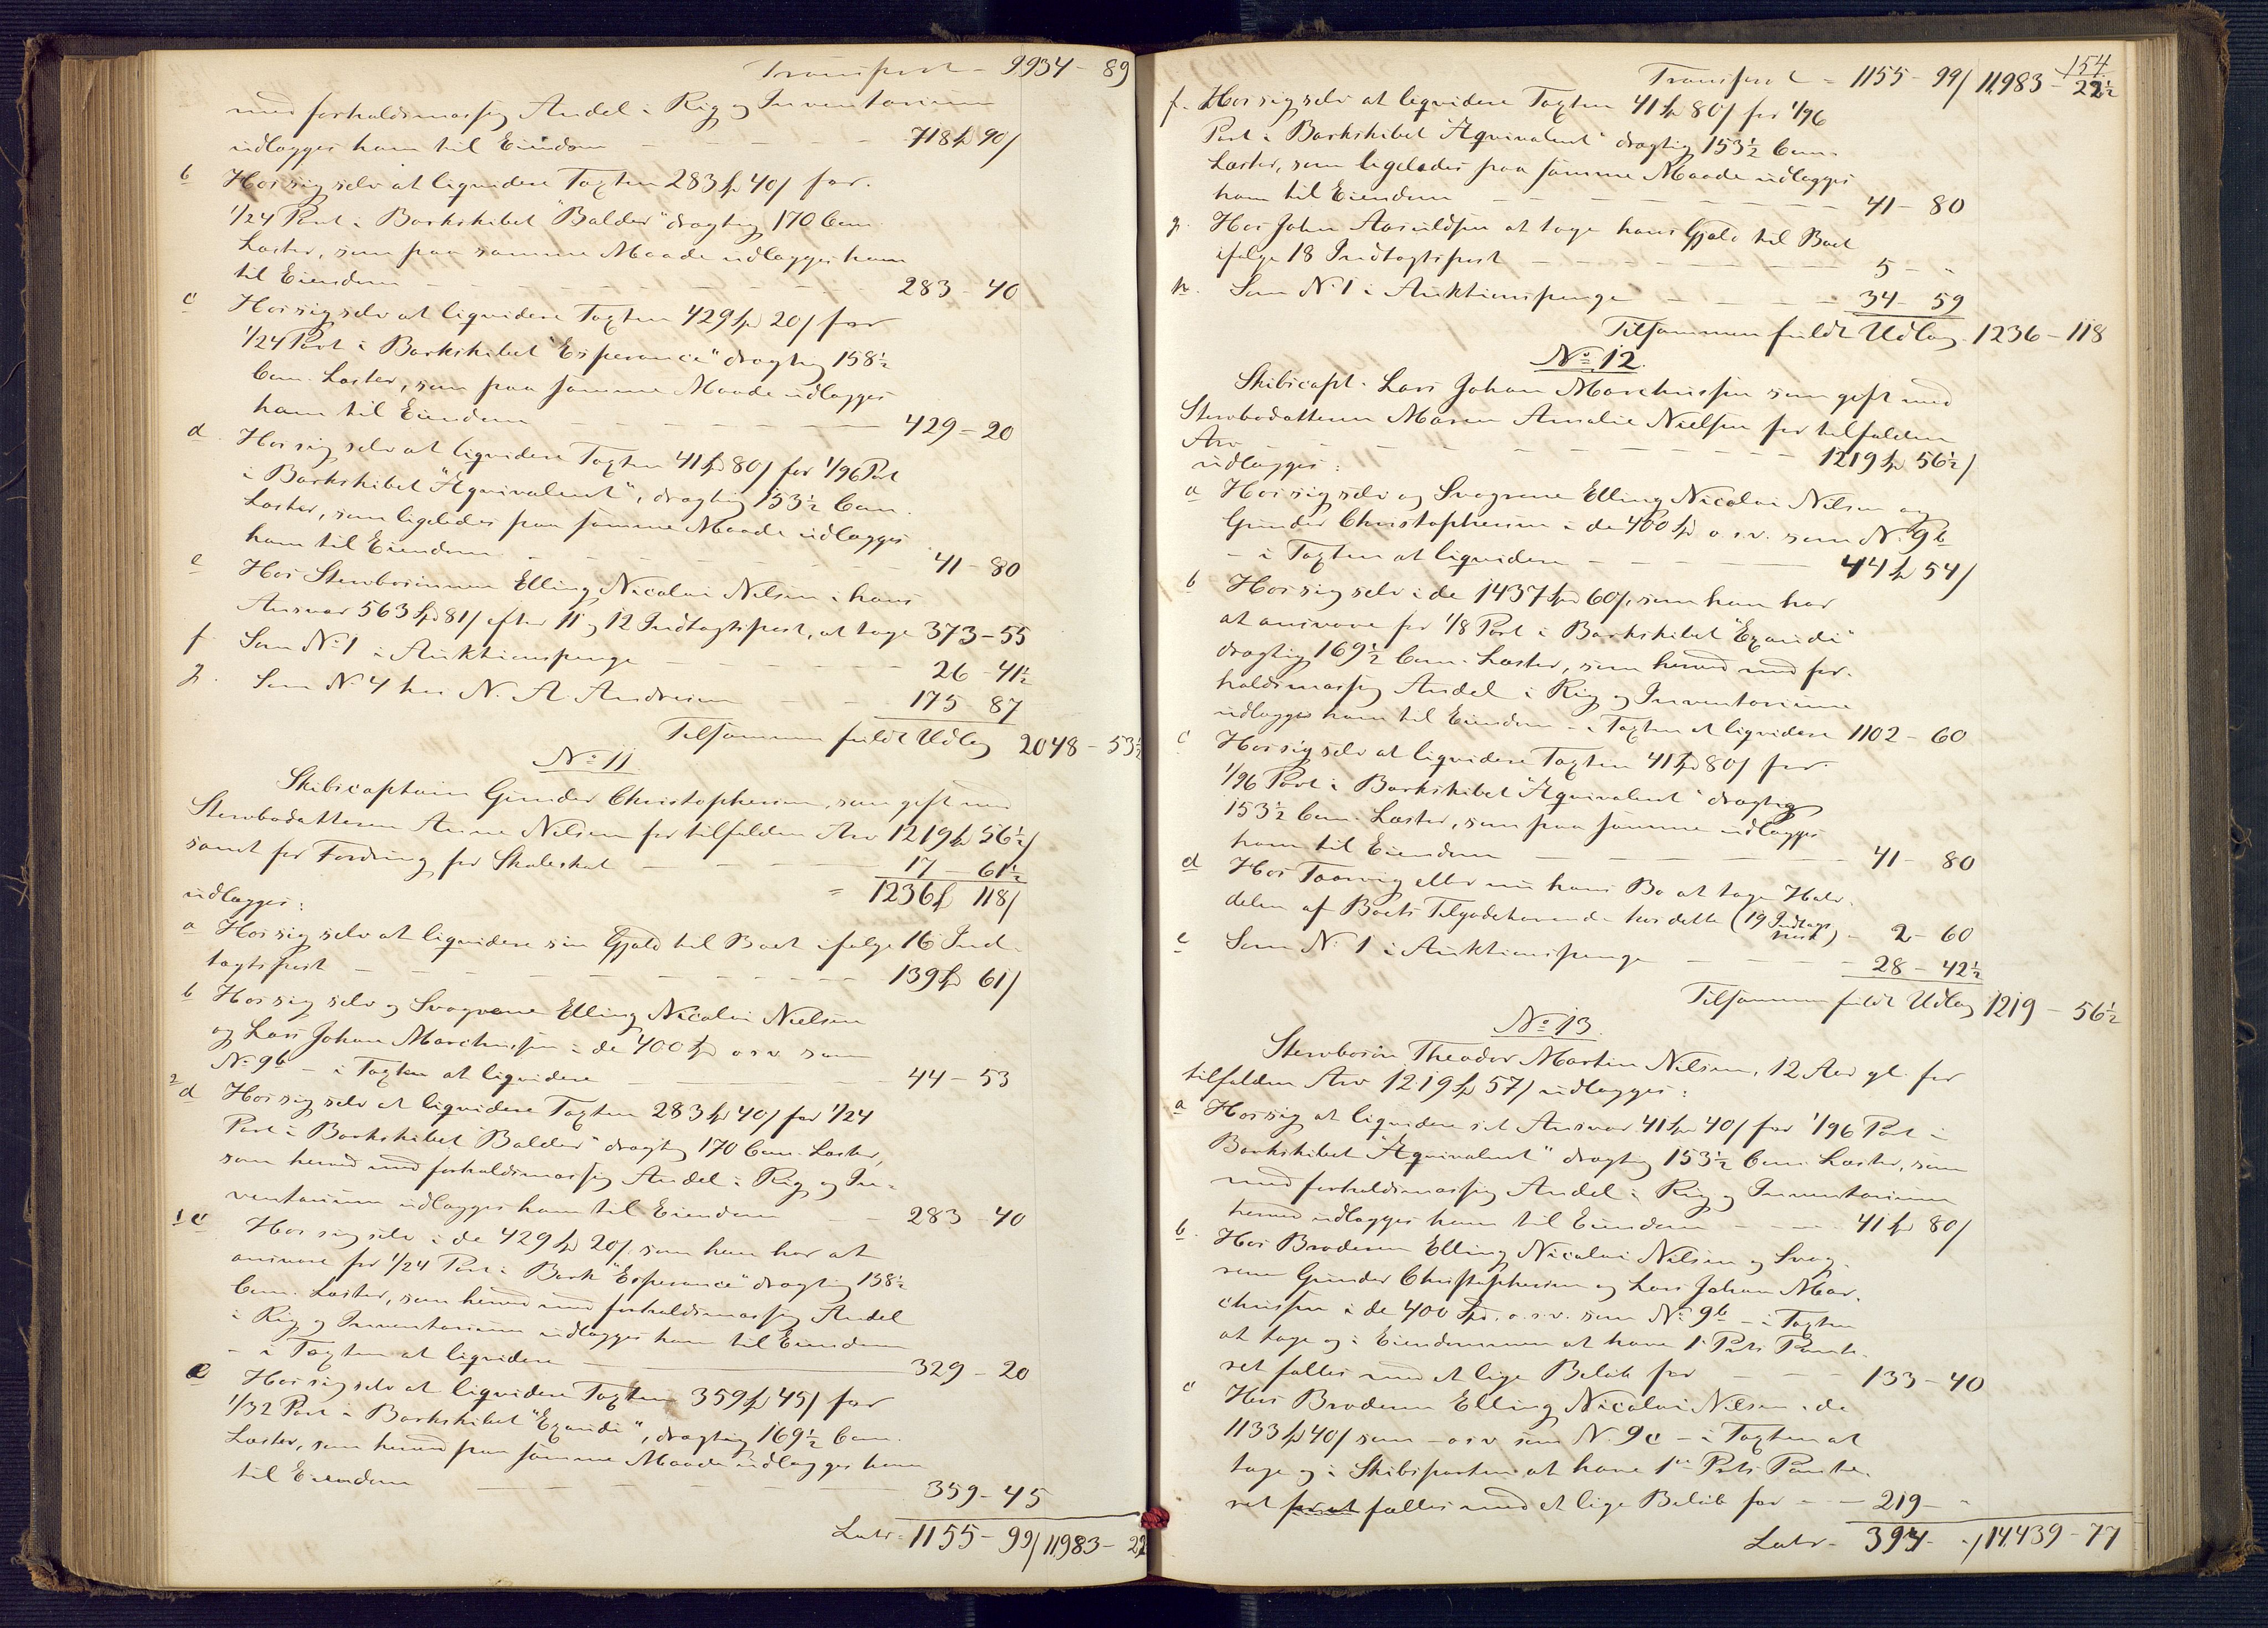 Transport - 9934 - 89
med forholdsmæssig Andel i Rig og Inventarium
udlægges ham til Eiendom - - - - - - 718 Spd 90 ſ
b Hos sig selv at liqvidere Taxten 283 Spd 40 ſ for
1/24 Part i Barkskibet "Balder" drægtig 170 Com.
Læster, som paa samme Maade udlægges ham
til Eiendom - - - - - - - - 283 - 40
c Hos sig selv at liqvidere Taxten 429 Spd 20 ſ for
1/24 Part i Barkskibet "Esperance" drægtig 158½
Com. Læster, som paa samme Maade udlægges
ham til Eiendom - - - - - - - 429 - 20
d. Hos sig selv at liqvidere Taxten 41 Spd 80 ſ for 1/96 Part
i Barkskibet "Æqvivalent", drægtig 153½ Com.
Læster, som ligeledes paa samme Maade udlægges
ham til Eiendom - - - - - - - 41 - 80
e Hos Stervbosønnen Elling Nicolai Nilsen i hans
Ansvar 563 Spd 81 ſ efter 11 og 12 Indtægtspost, at tage 373 - 55
f Som No 1 i Auktionspenge - - - - - - 26 - 41½
g. Som No 4 hos N. A. Andresen - - - 175 - 87
Tilsammen fuldt Udlæg 2048 - 53½
No 11
Skibscaptain Gunder Christophersen, som gift med
Stervbodatteren Anne Nilsen for tilfalden Arv 1219 Spd 56½ ſ
samt for Fordring for Skoleskat - - - - 17 - 61½
= 1236 Spd 118 ſ
udlægges:
a Hos sig selv at liqvidere sin Gjæld til Boet ifølge 16 Ind-
tægtspost - - - - - - - - - - 139 Spd 61 ſ
b Hos sig selv og Svogrene Elling Nicolai Nielsen
og Lars Johan Marchussen i de 400 Spd o s v som
No 9b - i Taxten at liqvidere - - - - 44 - 53
2 d Hos sig selv at liqvidere Taxten 283 Spd 40 ſ for 1/24
Part i Barkskibet "Balder" drægtig 170 Com. Læster,
som herved med forholdsmæssig Andel i Rig og In-
ventarium udlægges ham til Eiendom - - - 283 - 40
1 c Hos sig selv i de 429 Spd 20 ſ, som han har at
ansvare for 1/24 Part i Bark "Esperance" drægtig 158½
Com. Læster, som herved med forholdsmæssig Andel
i Rig og Inventarium udlægges ham til Eiendom
- i Taxten at liqvidere - - - - 329 - 20
e Hos sig selv at liqvidere Taxten 359 Spd 45 ſ for
1/32 Part i Barkskibet "Exaudi", drægtig 169½ Com.
Læster, som herved paa samme Maade udlægges ham
til Eiendom - - - - - - - 359 - 45
Latr = 1155 - 99 ſ 11983 - 22
154.
Transport = 1155 - 99 ſ 11983 - 22½
f. Hos sig selv at liqvidere Taxten 41 Spd 80 ſ for 1/96
Part i Barkskibet "Æqvivalent" drægtig 153½ Com.
Læster, som ligeledes paa samme Maade udlægges
ham til Eiendom - - - - - - - - 41 - 80
g. Hos John Aasuldsen at tage hans Gjæld til Boet
ifølge 18 Indtægtspost - - - - - - - - 5 - "
h. Som No 1 i Auktionspenge - - - - - 34 - 59
Tilsammen fuldt Udlæg. 1236 - 118
No 12.
Skibscapt. Lars Johan Marchussen som gift med
Stervbodatteren Maren Amalie Nielsen for tilfalden
Arv - - - - - - - - - - 1219 Spd 56½ ſ
udlægges:
a Hos sig selv og Svogrene Elling Nicolai Nilsen og
Gunder Christophersen i de 400 Spd o. s. v. som No 9b
- i Taxten at liqvidere - - - - 44 Spd 54 ſ
b Hos sig selv i de 1437 Spd 60 ſ, som han har
at ansvare for 1/8 Part i Barkskibet "Exaudi"
drægtig 169½ Com. Læster, som herved med for-
holdsmæssig Andel i Rig og Inventarium
udlægges ham til Eiendom - i Taxten at liqvidere 1102 - 60
c Hos sig selv at liqvidere Taxten 41 Spd 80 ſ for
1/96 Part i Barkskibet "Æqvivalent" drægtig
153½ Com. Læster, som paa samme udlægges
ham til Eiendom - - - - - - - 41 - 80
d Hos Taarvig eller nu hans Bo at tage Halv-
delen af Boets Tilgodehavende hos dette (19 Indtægts
post) - 2 - 60
e Som No 1 i Auktionspenge - - - - - 28 - 42½
Tilsammen fuldt Udlæg 1219 - 56½
No 13.
Stervbosøn Theodor Martin Nilsen, 12 Aar gl. for
tilfalden Arv 1219 Spd 57 ſ udlægges:
a Hos sig at liqvidere sit Ansvar 41 Spd 40 ſ for 1/96 Part i
Barkskibet "Æqvivalent" drægtig 153½ Com. Læster, som
med forholdsmæssig Andel i Rig og Inventarium
herved udlægges ham til Eiendom - - - - 41 Spd 80 ſ
b. Hos Broderen Elling Nicolai Nilsen og Svog-
rene Gunder Christophersen og Lars Johan Mar-
chussen i de 400 Spd. o. s. v. som No 9b - i Taxten
at tage og i Eiendommen at have 1ste Prts Pante-
ret fælles med et lige Beløb for - - - 133 - 40
c Hos Broderen Elling Nicolai Nilsen i de
1133 Spd 40 ſ som - o s v som No 9c - i Taxten at
tage og i Skibsparten at have 1ste Prts Pante-
ret for et fælles med et lige Beløb for - - - 219 - "
Latr - 394 - " ſ 14439 - 77